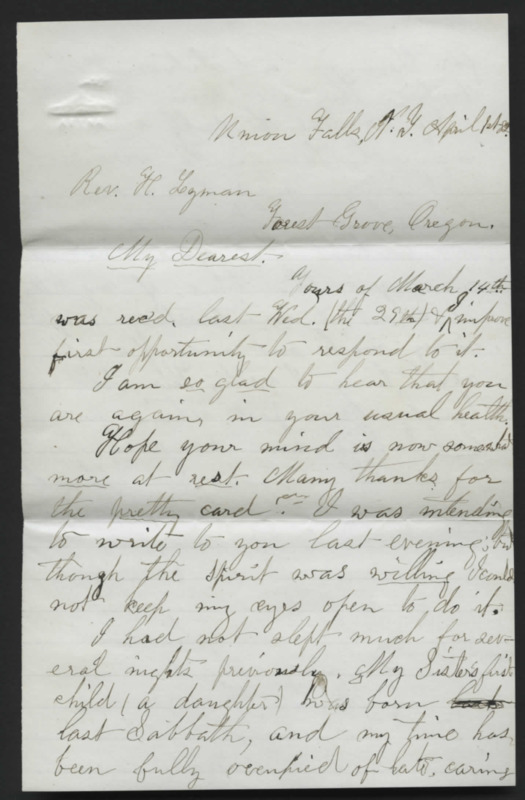 Union Falls, N.Y. April 1st
Rev. H. Lyman
Forest Grove, Oregon.
My Dearest.-
Yours of March 14th
was rec'd. last Wed. (the 29th) & I improve
first opportunity to respond to it.
I am so glad to hear that you
are again, in your usual health.
Hope your mind is now somewhat
more at rest. Many thanks for
the pretty card. I was intending
to write to you last evening; but
though the spirit was willing I could
not keep my eyes open to do it.
I had not slept much for sev-
eral nights previously. My Sister's first
child (a daughter) was born
last Sabbath, and my time has
been fully occupied of late, caring